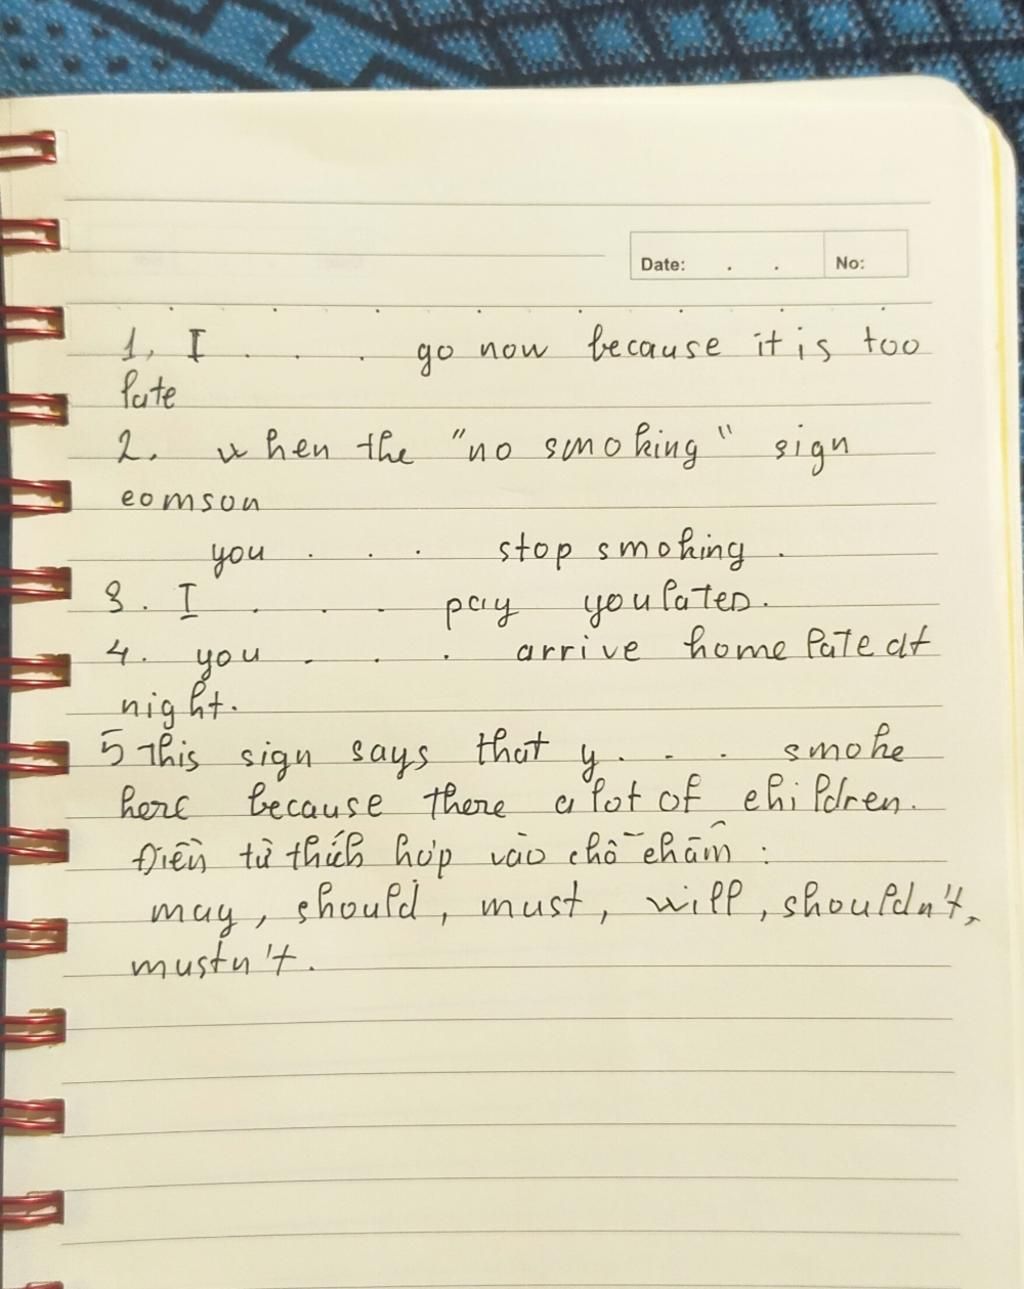 Date: . . No:
1, I . . . go now because it is too
late
2. when the "no smoking" sign
comson
you . . . stop smoking.
3. I . . . pay you later.
4. you . . . arrive home late at
night.
5 This sign says that y. . . smoke
here because there a lot of children.
Điền từ thích hợp vào chỗ chấm :
may, should, must, will, shouldn't,
mustn't.